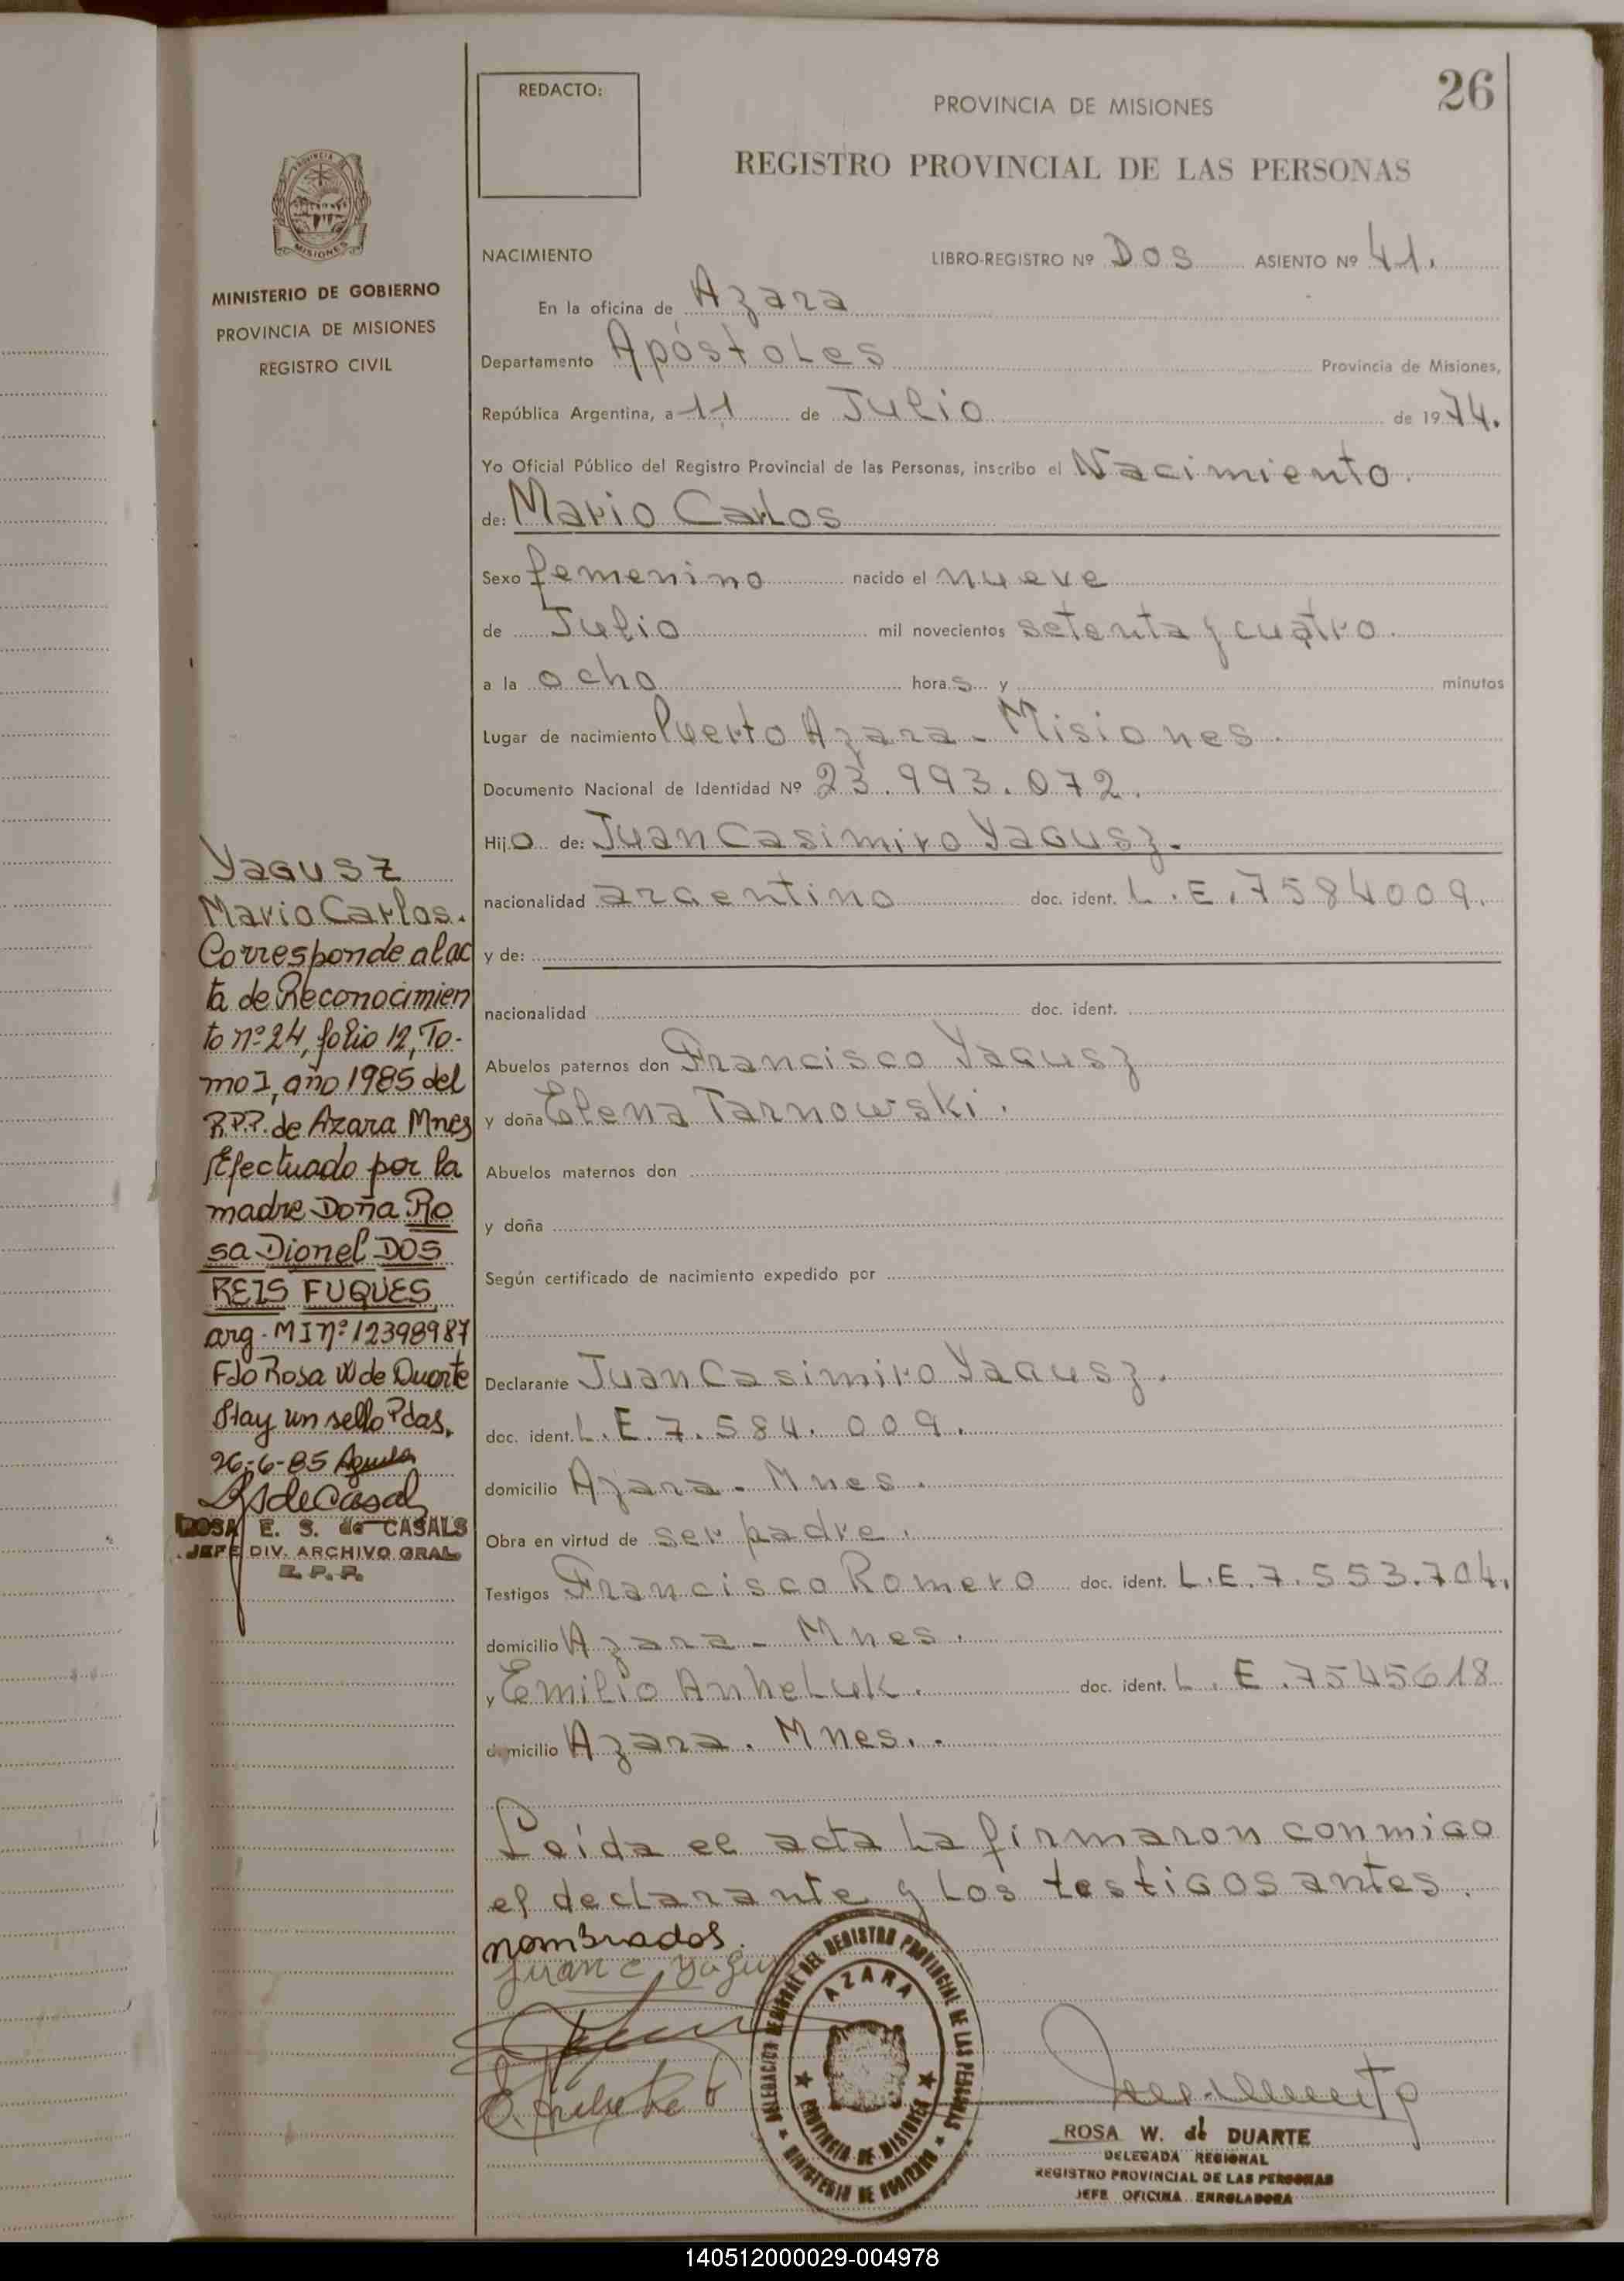 26
REDACTO:
PROVINCIA DE MISIONES
REGISTRO PROVINCIAL DE LAS PERSONAS
PROVINCIA DE
MISIONES
MINISTERIO DE GOBIERNO
PROVINCIA DE MISIONES
REGISTRO CIVIL
NACIMIENTO LIBRO-REGISTRO Nº Dos ASIENTO Nº 41.
En la oficina de Azara
Departamento Apóstoles Provincia de Misiones,
República Argentina, a 11 de Julio de 1974.
Yo Oficial Público del Registro Provincial de las Personas, inscribo el Nacimiento.
de: Mario Carlos
Sexo femenino nacido el nueve
de Julio mil novecientos setenta y cuatro.
a la ocho horas y minutos
Lugar de nacimiento Puerto Azara - Misiones.
Documento Nacional de Identidad Nº 23.993.072.
Hijo de: Juan Casimiro Yagusz.
nacionalidad argentino doc. ident. L.E.7584009.
y de:
nacionalidad doc. ident.
Abuelos paternos don Francisco Yagusz
y doña Elena Tarnowski.
Abuelos maternos don
y doña
Según certificado de nacimiento expedido por
Declarante Juan Casimiro Yagusz.
doc. ident. L.E.7.584.009.
domicilio Azara - Mnes.
Obra en virtud de ser padre.
Testigos Francisco Romero doc. ident. L.E.7.553.704.
domicilio Azara - Mnes.
y Emilio Anheluk. doc. ident. L.E.7545618
domicilio Azara. Mnes..
Leída el acta la firmaron conmigo
el declarante y los testigos antes.
nombrados.
Yagusz
Mario Carlos.
Corresponde al ac
ta de Reconocimien
to nº 24, folio 12, To-
mo I, año 1985 del
R.P.P. de Azara Mnes
Efectuado por la
madre Doña Ro
sa Dionel DOS
REIS FUQUES
arg. MI nº 12398987
Fdo Rosa W de Duarte
Hay un sello Pdas.
26-6-85
RSdeCasal
ROSA E. S. de CASALS
JEFE DIV. ARCHIVO GRAL
R. P. P.
Juan C. Yagusz
DELEGACION REGIONAL DEL REGISTRO PROVINCIAL DE LAS PERSONAS
MINISTERIO DE GOBIERNO
AZARA
PROVINCIA DE MISIONES
ROSA W. de DUARTE
DELEGADA REGIONAL
REGISTRO PROVINCIAL DE LAS PERSONAS
JEFE OFICINA ENROLADORA
140512000029-004978